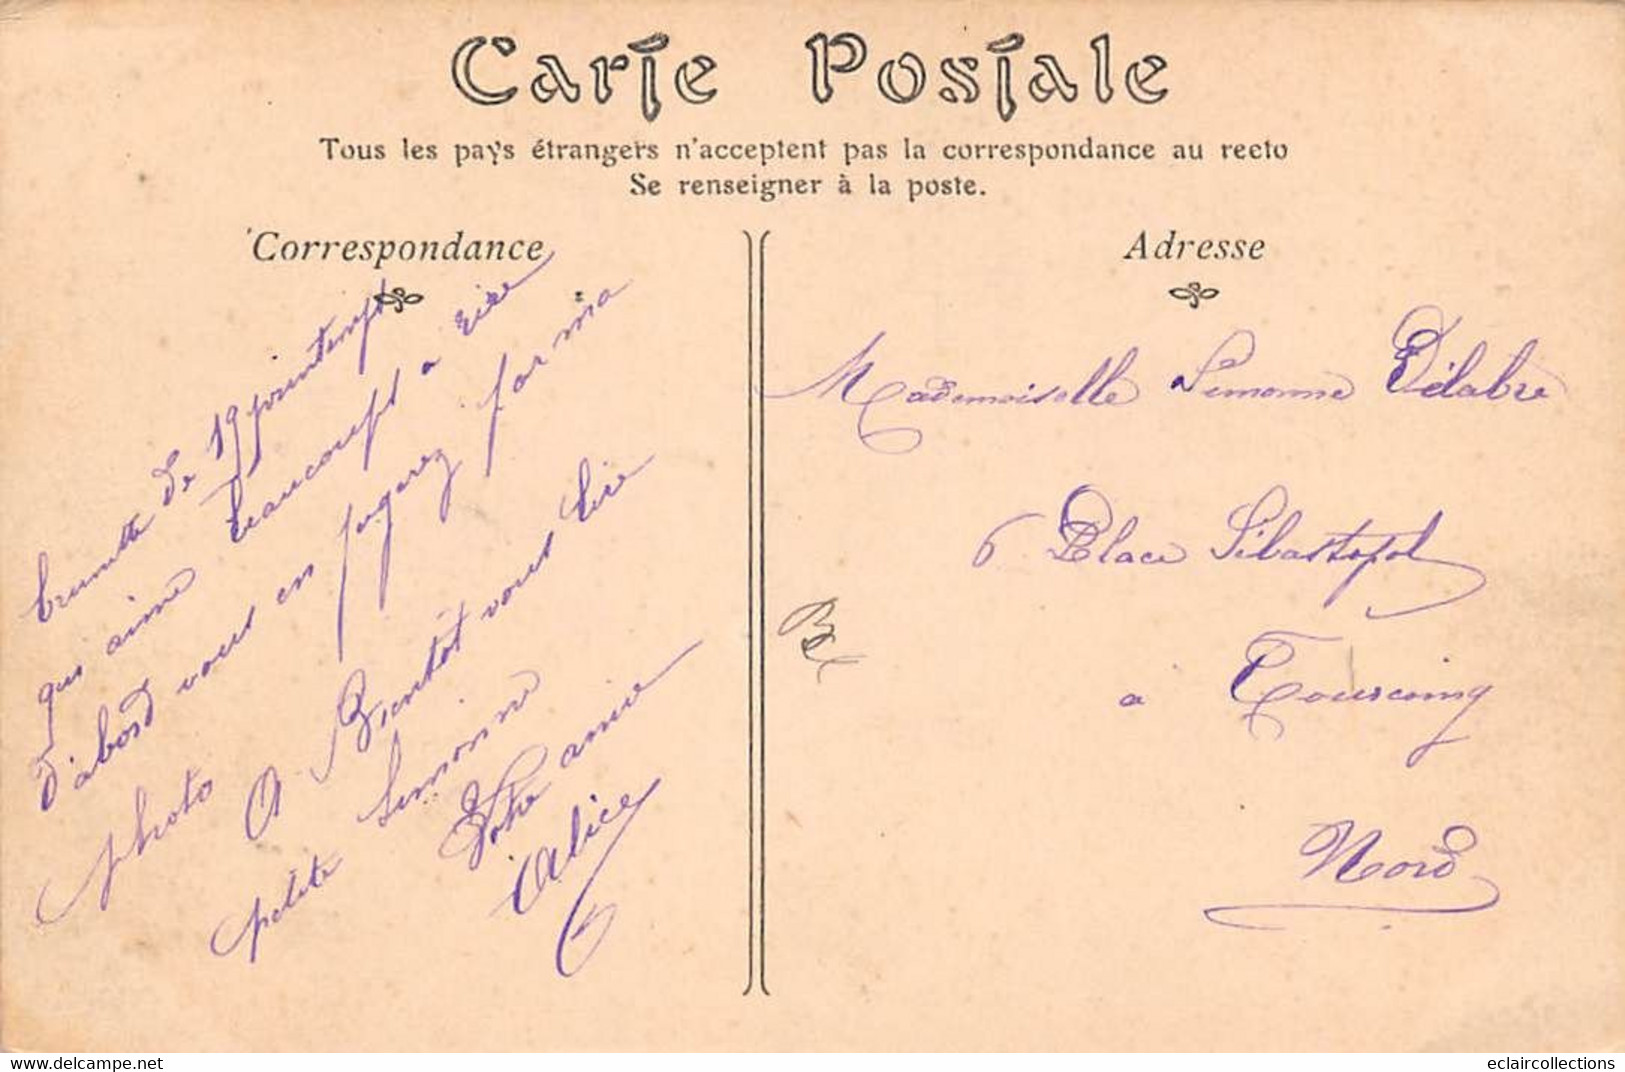 Carte Postale
Tous les pays étrangers n'acceptent pas la correspondance au recto
Se renseigner à la poste.
Correspondance
brunette de 19 printemps
qui aime beaucoupt a rire
d'abord vous en jugerez par ma
photo A Bientôt vous lire
petite Simonne
Votre amie
Alice
Adresse
Mademoiselle Simonne Délabre
6 Place Sébastopol
a Tourcoing
Nord
eclaircollections